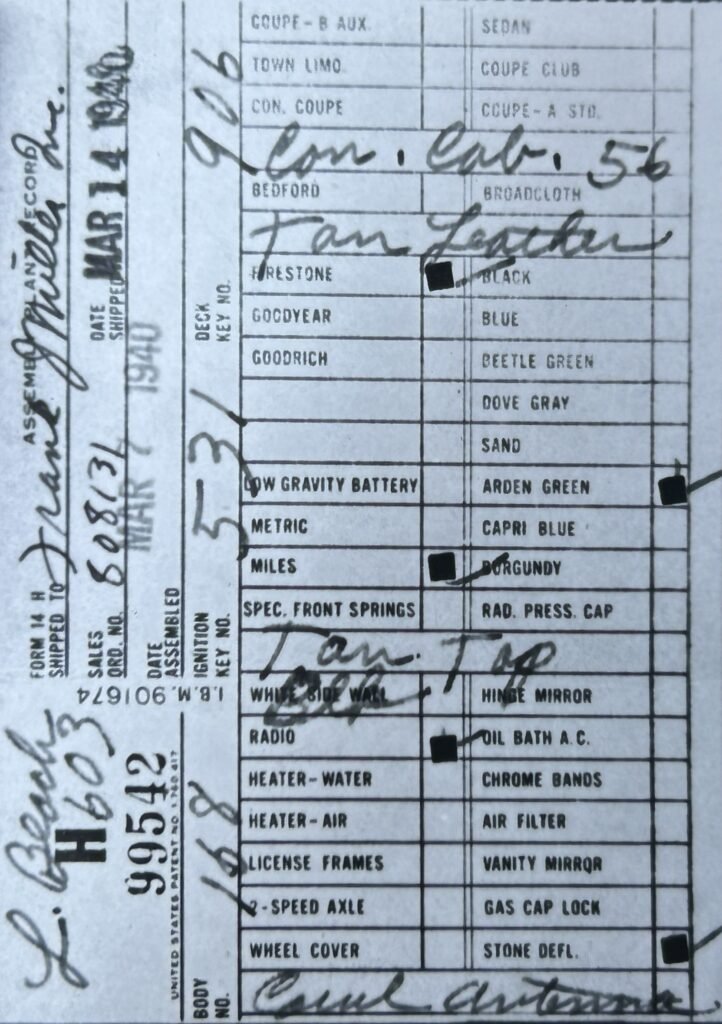 FORM 14 H ASSEMBLY PLANT RECORD
SHIPPED TO Frank J Miller Inc.
SALES ORD. NO. 608131 DATE SHIPPED MAR 14 1940
DATE ASSEMBLED MAR 7 1940
IGNITION KEY NO. 531 DECK KEY NO. 906
L. Beach
H 603
99542
UNITED STATES PATENT NO. 1,780,417
I.B.M. 901674
BODY NO. 168
COUPE-B AUX. SEDAN
TOWN LIMO. COUPE CLUB
CON. COUPE COUPE-A STD.
Con. Cab. 56
BEDFORD BROADCLOTH
Tan Leather
FIRESTONE BLACK
GOODYEAR BLUE
GOODRICH BEETLE GREEN
DOVE GRAY
SAND
LOW GRAVITY BATTERY ARDEN GREEN
METRIC CAPRI BLUE
MILES BURGUNDY
SPEC. FRONT SPRINGS RAD. PRESS. CAP
Tan Top
WHITE SIDE WALL HINGE MIRROR
RADIO OIL BATH A.C.
HEATER-WATER CHROME BANDS
HEATER-AIR AIR FILTER
LICENSE FRAMES VANITY MIRROR
2-SPEED AXLE GAS CAP LOCK
WHEEL COVER STONE DEFL.
Cowl Antenna